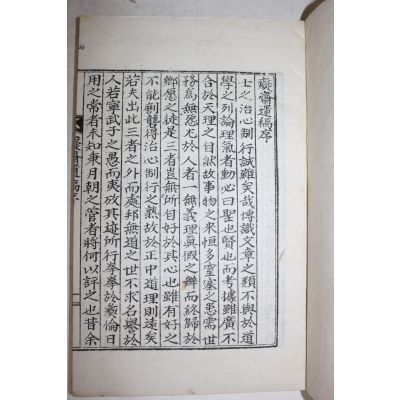 癡齋遺稿序
士之治心制行誠難矣哉博識文章之類不與於道
學之列論理氣者動必曰聖也賢也而考據雖廣不
合於天理之自然故事物之來恒多窒塞之患需世
務爲無怨尤於人者一無義理眞假之辨而終歸於
鄉愿之徒是三者豈無所自好於其心也雖有好之
不能劑雙得治心制行之氣故於正中道理則遠矣
若夫出此三者之外而處邦無道之世不求名譽於
人若寗武子之愚而夷放其迹所行拳拳於彜倫日
用之常者未知秉月朝之管者將何以評之也昔余
癡齋遺稿序